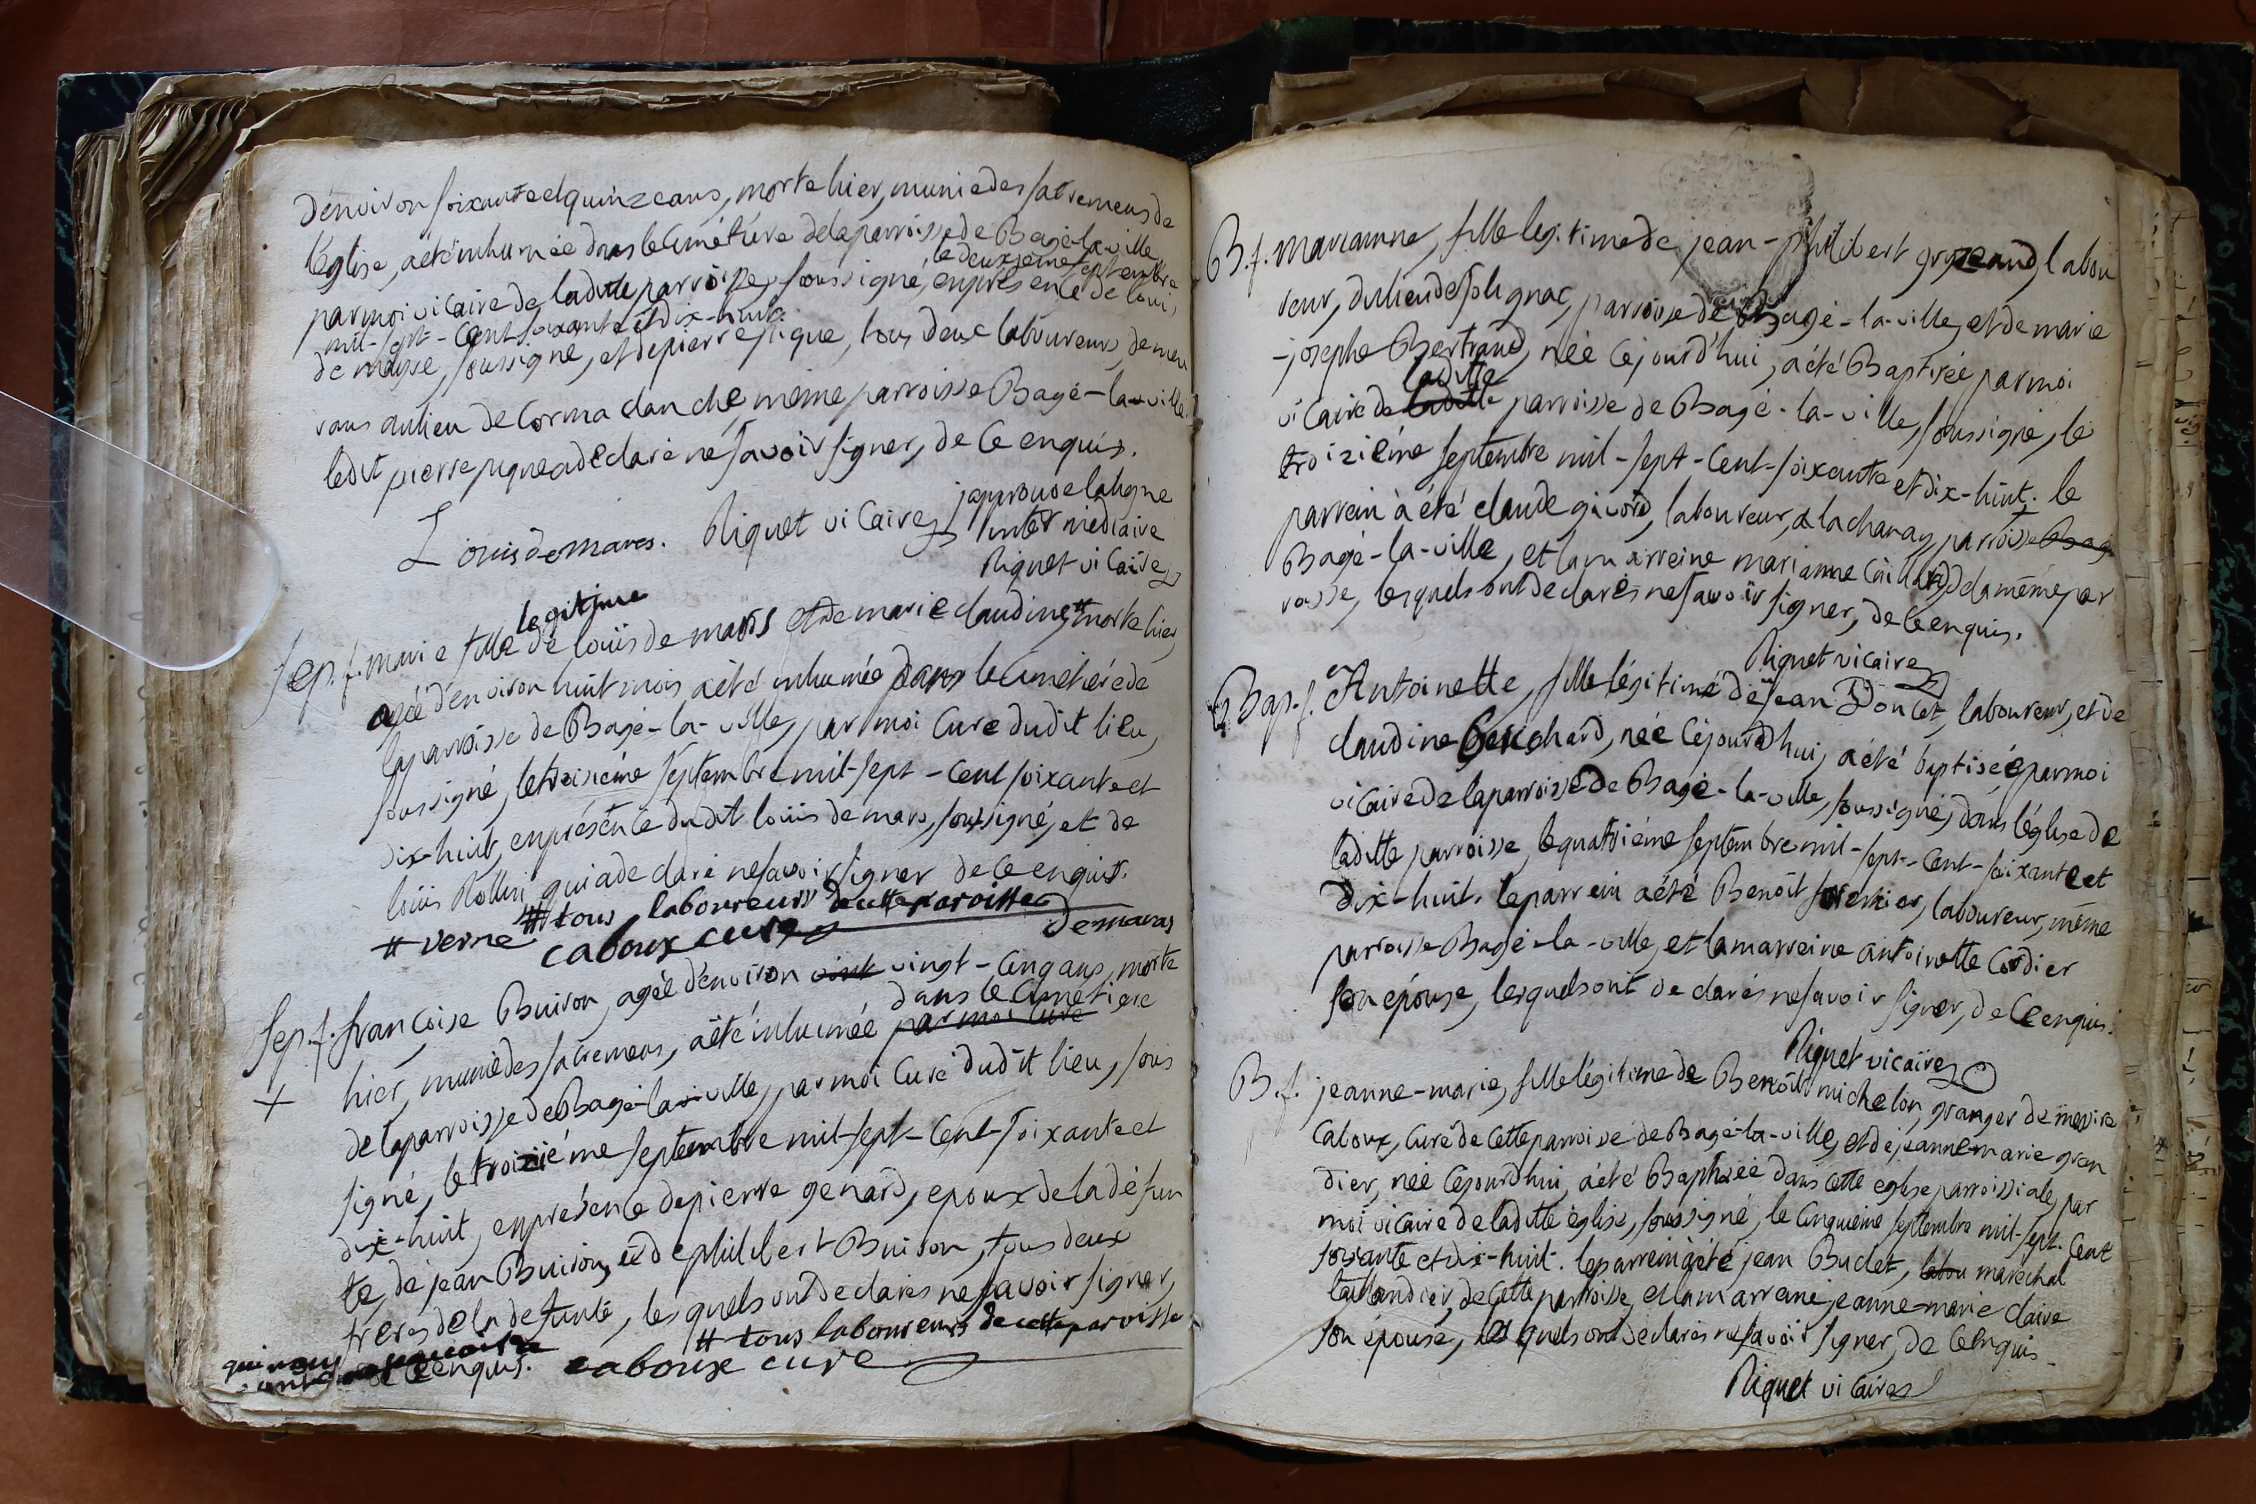 d'environ soixante et quinze ans, morte hier, munie des sacremens de
l'église, a été inhumée dans le cimétiére de la parroisse de Bagé-la-ville,
le deuxieme septembre
par moi vicaire de laditte parroisse, soussigné, en présence de loui,
mil-sept-cent soixante et dix-huit.
de marse, soussigné, et de pierre pique, tous deux laboureurs, demeu
rans au lieu de Cormaclanche, même parroisse Bagé-la-ville.
ledit pierre pique a déclaré ne savoir signer, de ce enquis.
Louis de mares. Riquet vicaire
japprouve la ligne
intermédiaire
Riquet vicaire
legitime
Sep. f. marie fille de loüis de mars et de marie claudine # morte hier
agée d'environ huit mois a été inhumée dans le cimétiére de
la parroisse de Bagé-la-ville, par moi Curé dudit lieu,
soussigné, le troisiéme septembre mil-sept-cent soixante et
dix-huit, en présence dudit loüis de mars, soussigné, et de
loüis Rollin, qui a declaré ne savoir signer de ce enquis.
# verne # tous laboureurs de cette paroisse
caboux curé demaras
Sep. f. françoise Buiron, agée d'environ vint vingt-cinq ans, morte
dans le cimetiere
hier, munie des sacremens, a été inhumée par moi Curé
de la parroisse de Bagé-la-ville, par moi Curé dudit lieu, sous
signé, le troiziéme septembre mil-sept-cent-soixante et
dix-huit, en présence de pierre genard, epoux de la défun
te, de jean Buiron, et de philibert Buiron, tous deux
freres de la defunte, lesquels ont declarés ne savoir signer,
# tous laboureurs de cette paroisse
de ce enquis. caboux curé
B. f. marianne, fille legitime de jean-philibert gyreaud, labou
reur, du lieu de solignac, parroisse de Bagé-la-ville, et de marie
-josephe Bertrand, née cejourd'hui, a été Baptisée par moi
laditte
vicaire de laditte parroisse de Bagé-la-ville, soussigné, le
troiziéme septembre mil-sept-cent-soixante et dix-huit. le
parrein a été claude givord, laboureur, a la chanay, parroisse Bag
Bagé-la-ville, et la marreine marianne Caillard de la même par
roisse, lesquels ont declarés ne savoir signer, de ce enquis.
Riquet vicaire
Bap. f. Antoinette, fille légitime de jean Doncet, laboureur, et de
claudine Guichard, née cejourd'hui, a été baptisée par moi
vicaire de la parroisse de Bagé-la-ville, soussigné, dans l'église de
laditte parroisse, le quatriéme septembre mil-sept-cent-soixante et
dix-huit. le parrein a été Benoît fremier, laboureur, même
parroisse Bagé-la-ville, et la marreine antoinette Cordier
son épouse, lesquels ont declarés ne savoir signer, de ce enquis.
Riquet vicaire
B. f. jeanne-marie, fille légitime de Benoît michelon, granger de messire
Caboux, Curé de cette parroisse de Bagé-la-ville, et de jeanne marie gran
dier, née cejourd'hui, a été Baptisée dans cette eglise parroissiale, par
moi vicaire de laditte église, soussigné, le cinquiéme septembre mil-sept-cent
soixante et dix-huit. le parrein a été jean Buclet, labou maréchal
taillandier, de cette parroisse, et la marreine jeanne-marie claire
son épouse, lesquels ont déclarés ne savoir signer, de ce enquis.
Riquet vicaire